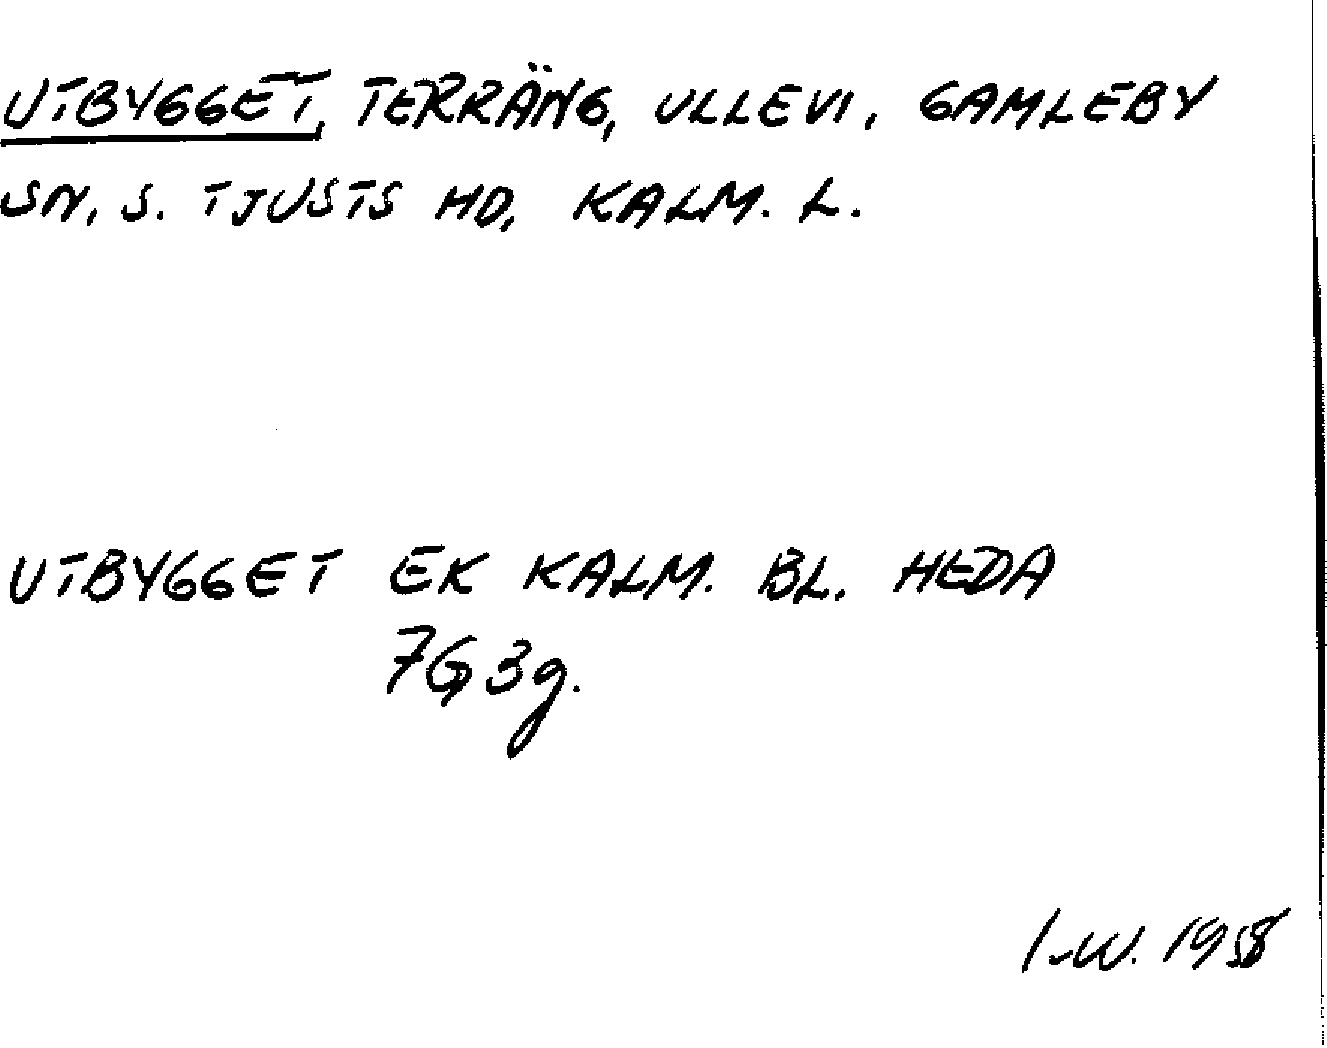 UTBYGGET, TERRÄNG, ULLEVI, GAMLEBY
SN, S. TJUSTS HD, KALM. L.
UTBYGGET EK KALM. BL. HEDA
7G 3g.
I-W. 1958